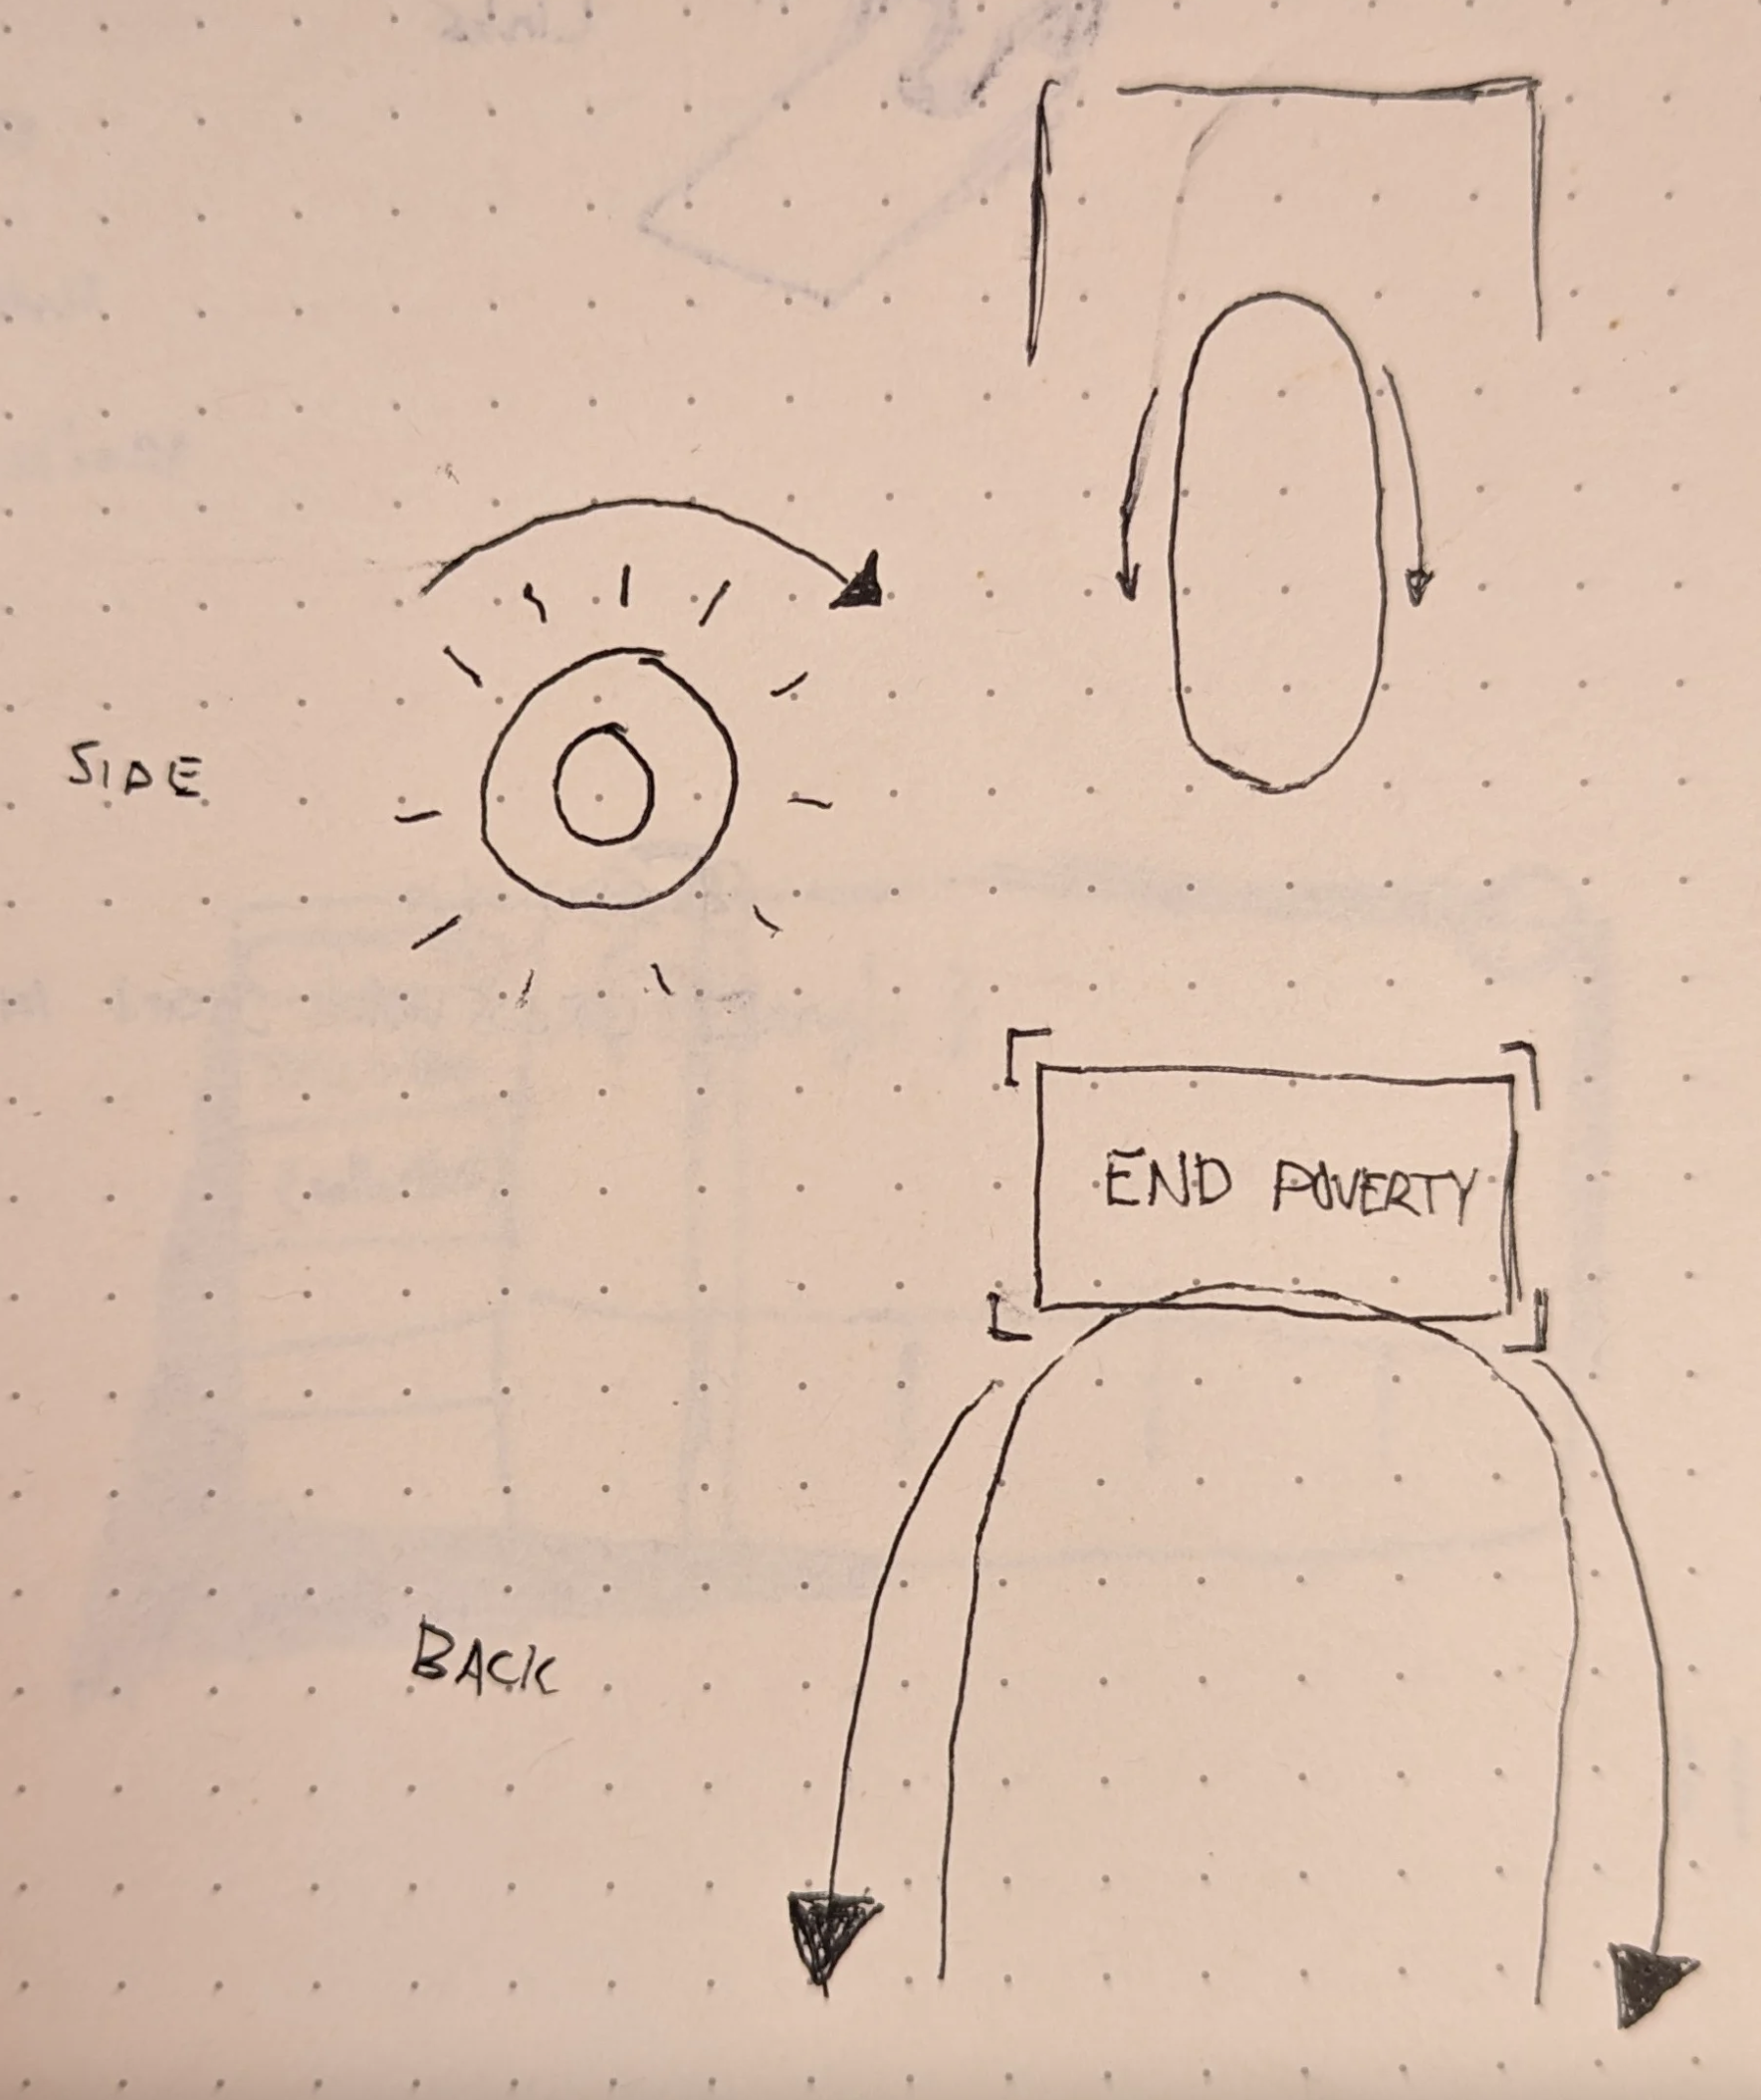 SIDE
END POVERTY
BACK